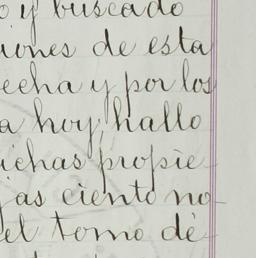 o y buscado
iones de esta
echa y por los
a hoy, hallo
ichas propie
as ciento no
el tomo dé